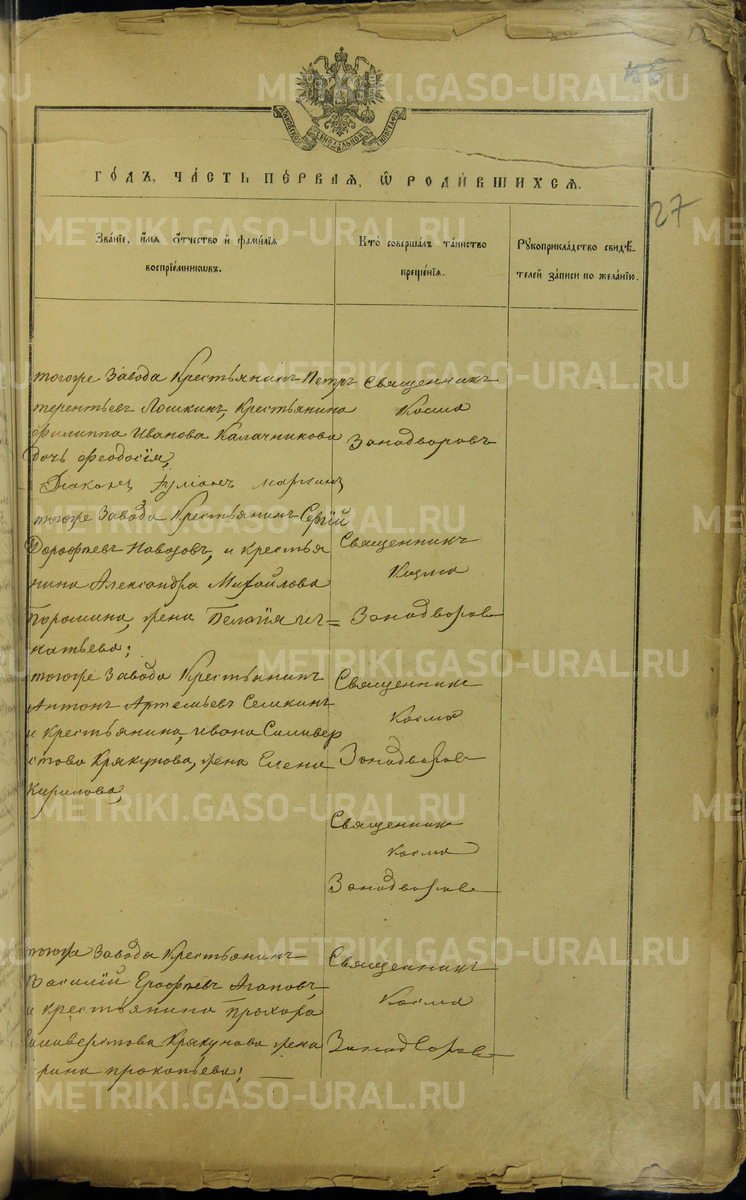 45
27
ГО́ДЪ, ЧА́СТЬ ПЕ́РВАЯ, Ѿ РОДИ́ВШИХСЯ.
Зва́нїе, и҆́мя ѻ҆́тчество и҆ фами́лїя
воспрїе́мникѡвъ.
Кто̀ соверша́лъ та́инство
креще́нїя.
Рꙋкоприкла́дство свидѣ́-
телей за́писи по жела́нїю.
тогоже Завода Крестьянинъ Петръ
терентьев Лошкин, Крестьянина
Филиппа Иванова Калачникова
дочь Феодосiя,
Дiаконъ
Священникъ
Косма
Занадворовъ
тогоже Завода Крестьянинъ Сергiй
Дорофѣевъ и крестья
нина Александра Михайлова
жена Пелагiя иг=
натьева;
Священникъ
Косма
Занадворовъ
тогоже Завода Крестьянинъ
Антонъ Артемьевъ Семкинъ
и крестьянина, ивана Силивер
стова Крякунова, жена Елена
Кирилова,
Священникъ
Косма
Занадворовъ
Священникъ
Косма
Занадворовъ
тогоже Завода Крестьянинъ
Василiй Ерофѣевъ Агаповъ,
и крестьянина прохора
Силиверстова Крякунова жена
прокопьева;
Священникъ
Косма
Занадворовъ
METRIKI.GASO-URAL.RU